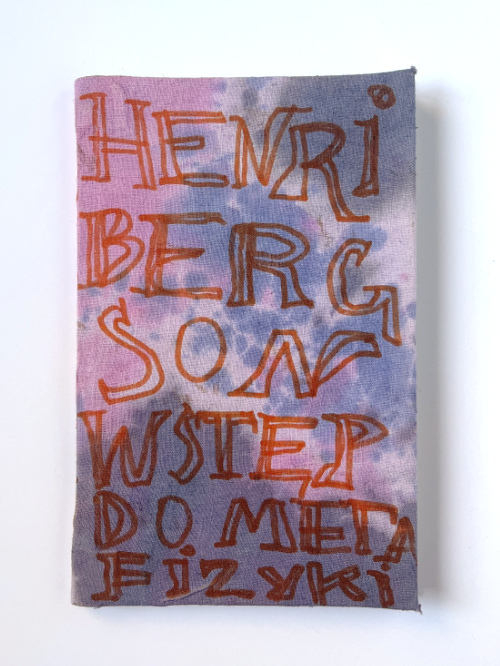 HENRi
BERG
SON
WSTĘP
DO META
FiZYKi